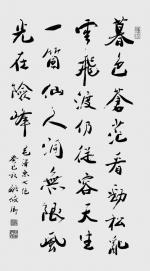 暮色蒼茫看勁松亂
雲飛渡仍從容天生
一箇仙人洞無限風
光在險峰
毛澤東七絕
癸巳秋